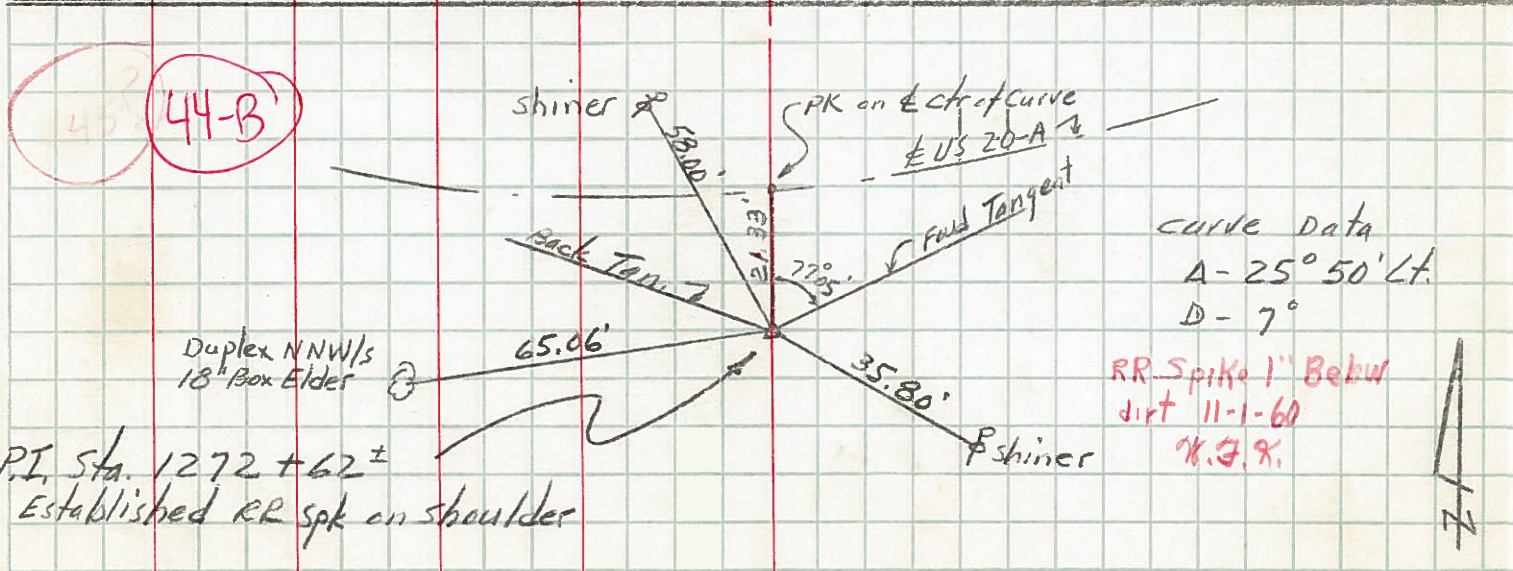 44-B
shiner
58.00'
PK on ℄ ctr of Curve
℄ US 20-A
21.33'
77° 05'
Fowd Tangent
Back Tan.
curve Data
Δ - 25° 50' Lt.
D - 7°
Duplex NNW/s
18" Box Elder
65.06'
35.80'
shiner
RR Spike 1" Below
dirt 11-1-60
P.I. Sta. 1272 + 62 ±
Established RR spk on shoulder
N